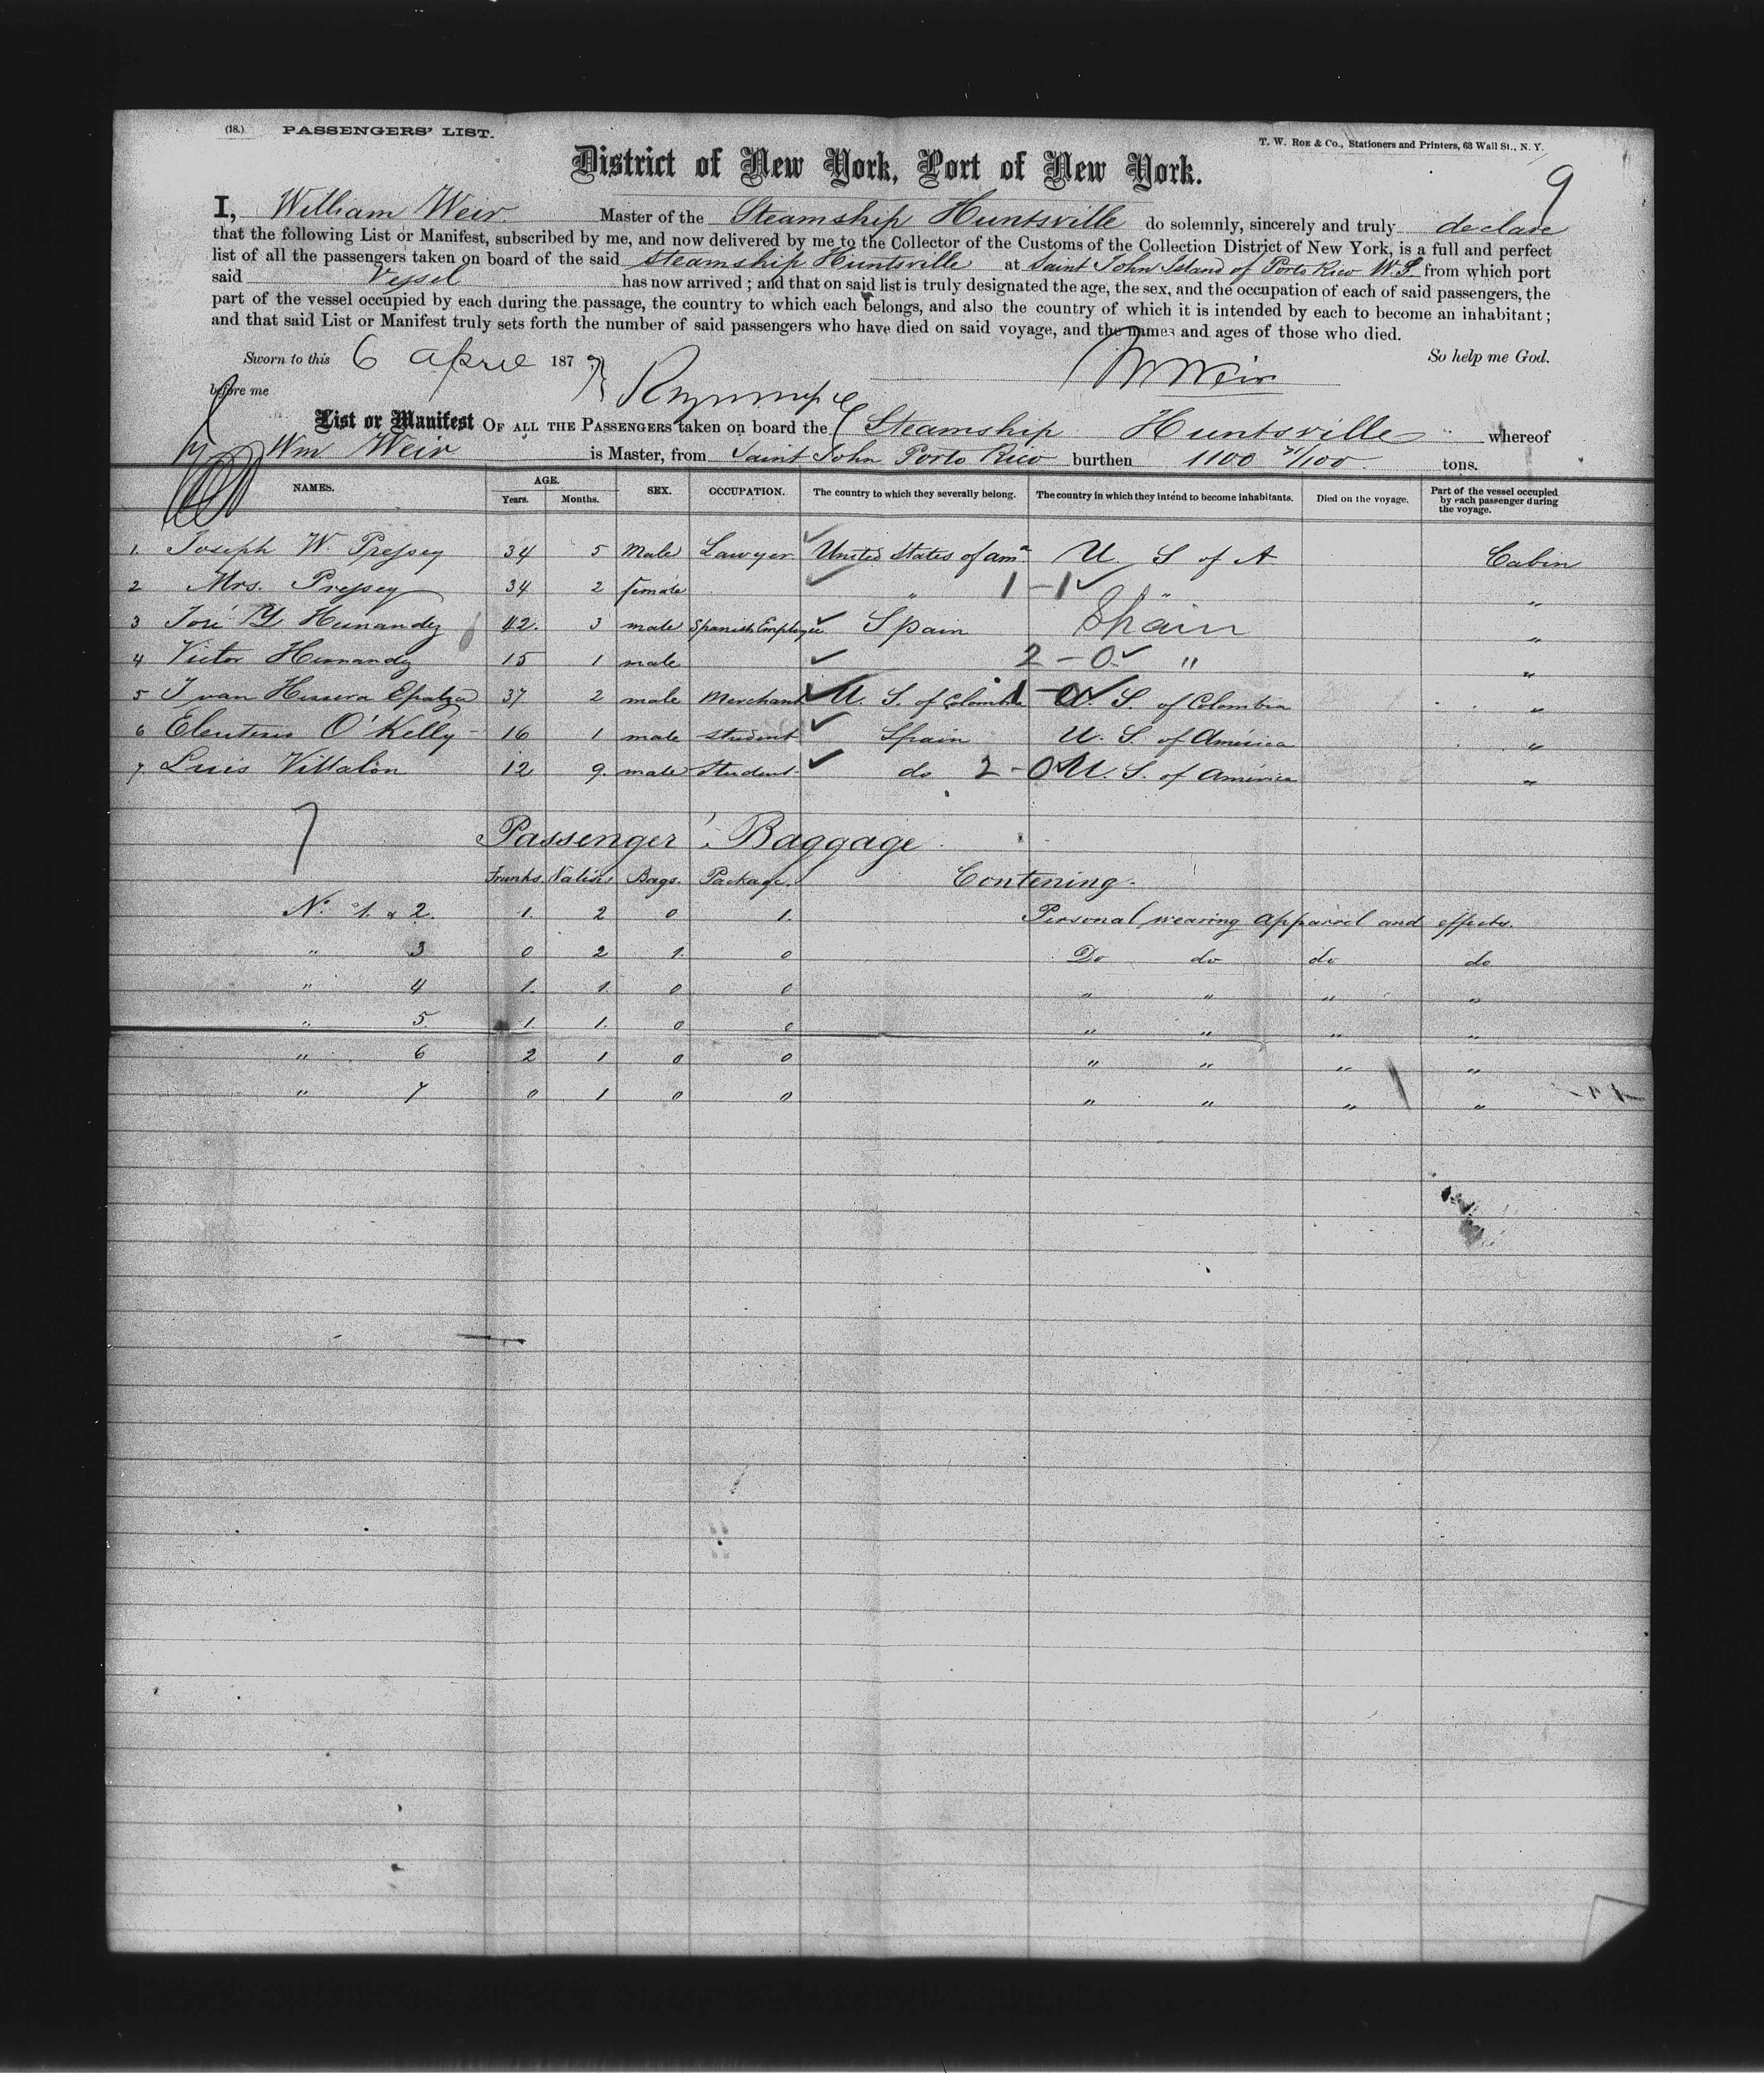 (18.) PASSENGERS' LIST.
T. W. ROE & CO., Stationers and Printers, 63 Wall St., N. Y.
9
District of New York, Port of New York.
I, William Weir Master of the Steamship Huntsville do solemnly, sincerely and truly declare
that the following List or Manifest, subscribed by me, and now delivered by me to the Collector of the Customs of the Collection District of New York, is a full and perfect
list of all the passengers taken on board of the said Steamship Huntsville at Saint John Island of Porto Rico W. I. from which port
said Vessel has now arrived; and that on said list is truly designated the age, the sex, and the occupation of each of said passengers, the
part of the vessel occupied by each during the passage, the country to which each belongs, and also the country of which it is intended by each to become an inhabitant;
and that said List or Manifest truly sets forth the number of said passengers who have died on said voyage, and the names and ages of those who died.
Sworn to this 6 April 187 So help me God.
before me W Weir
List or Manifest OF ALL THE PASSENGERS taken on board the Steamship Huntsville whereof
Wm Weir is Master, from Saint John Porto Rico burthen 1100 /100 tons.
NAMES. AGE. Years. Months. SEX. OCCUPATION. The country to which they severally belong. The country in which they intend to become inhabitants. Died on the voyage. Part of the vessel occupied by each passenger during the voyage.
1. Joseph W. Pressey 34 5 Male Lawyer United States of Ama U S of A Cabin
2 Mrs. Pressey 34 2 female " 1-1 " "
3 José Y Hernandez 42. 3 male Spanish Employee Spain Spain "
4 Victor Hernandez 15 1 male 2-0 " "
5 Ivan Herrera Epalza 37 2 male Merchant U. S. of Colombia 1-0 U. S. of Colombia "
6 Eleuterio O'Kelly 16 1 male student Spain U. S. of America "
7 Luis Villalon 12 9. male Student do 2-0 U. S. of America "
7
Passenger' Baggage.
Trunks. Valises Bags. Package. Contening.
No. 1. & 2. 1. 2 0 1. Personal wearing apparrel and effects.
" 3 0 2 1. 0 Do do do do
" 4 1. 1. 0 0 " " " "
" 5. 1. 1. 0 0 " " " "
" 6 2 1 0 0 " " " "
" 7 0 1 0 0 " " " "